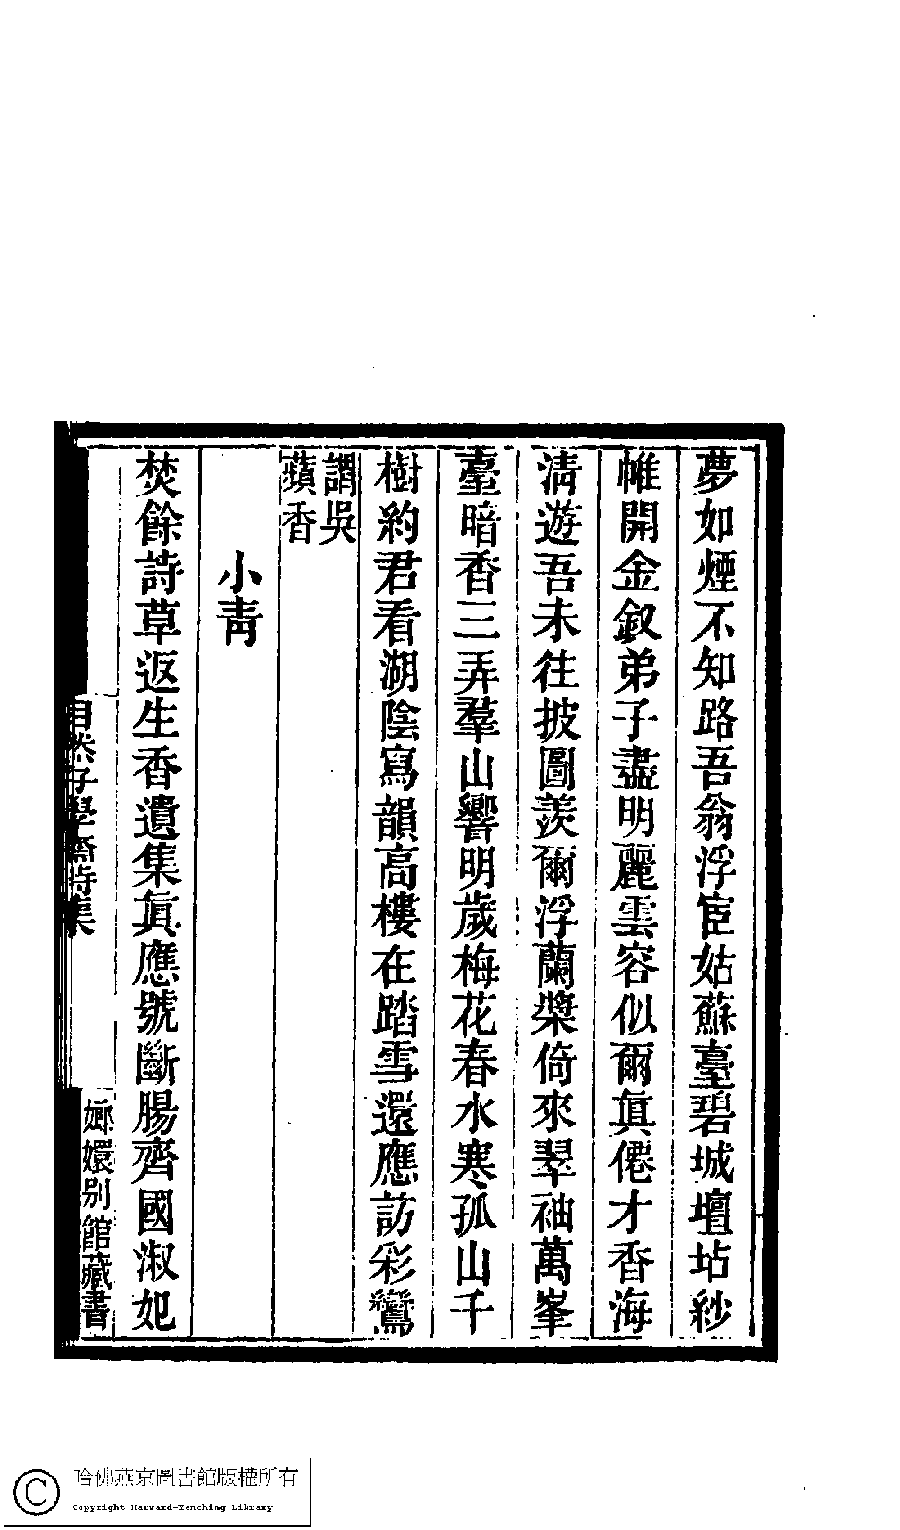 夢如煙不知路吾翁浮宦姑蘇臺碧城壇坫紗
帷開金釵弟子盡明麗雲容似爾眞僊才香海
淸遊吾未往披圖羨爾浮蘭槳倚來翠袖萬峯
臺暗香三弄羣山響明歲梅花春水寒孤山千
樹約君看湖陰寫韻高樓在踏雪還應訪彩鸞
謂吳
蘋香
小靑
焚餘詩草返生香遺集眞應號斷腸齊國淑妃
自然好學齋詩集
嫏嬛别館藏書
哈佛燕京圖書館版權所有
Copyright Harvard-Yenching Library